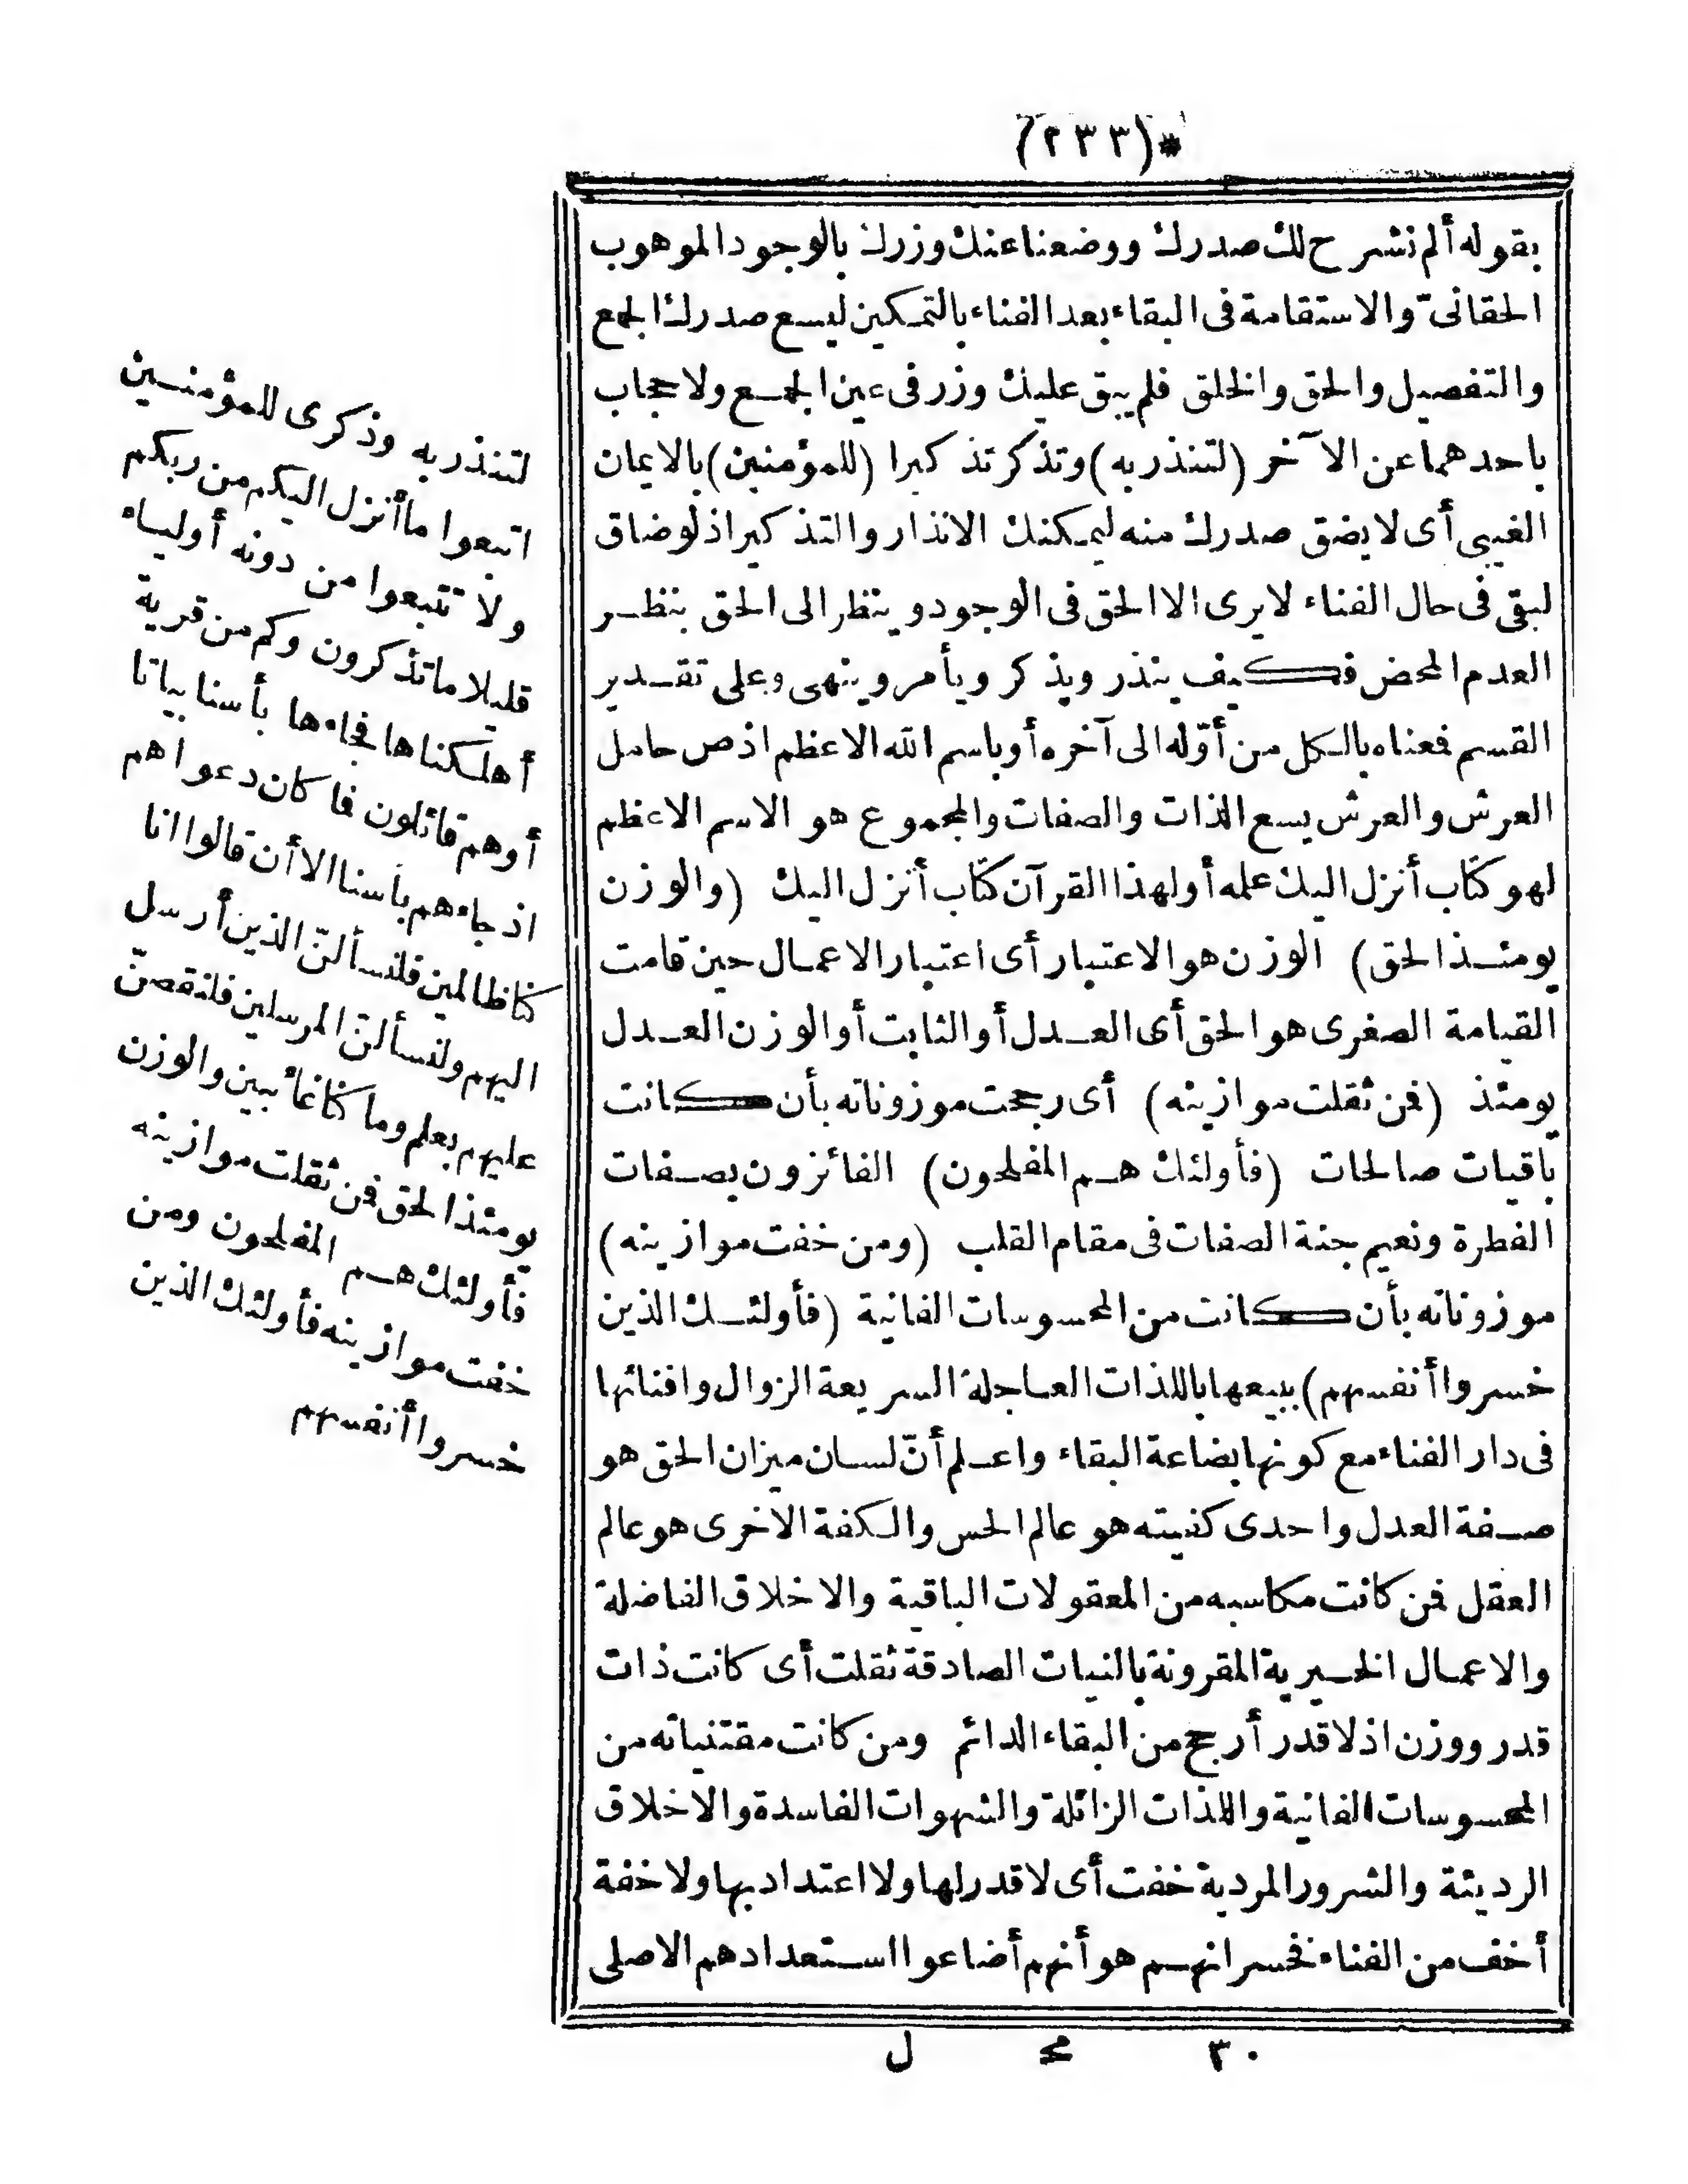 *(٢٣٣)
بقوله ألم نشرح لك صدرك ووضعنا عنك وزرك بالوجود الموهوب
الحقانىّ والاستقامة فى البقاء بعد الفناء بالتمكين ليسع صدرك الجمع
والتفصيل والحق والخلق فلم يبق عليك وزر فى عين الجمع ولا حجاب
باحدهما عن الآخر (لتنذر به) وتذكر تذكيرا (للمؤمنين) بالايمان
الغيبى أى لا يضق صدرك منه ليمكنك الانذار والتذكير اذ لو ضاق
لبقى فى حال الفناء لا يرى الا الحق فى الوجود و ينظر الى الحق بنظر
العدم المحض فكيف ينذر ويذكر ويأمر وينهى وعلى تقدير
القسم فعناه بالكل من أوّله الى آخره أو باسم الله الاعظم اذ ص حامل
العرش والعرش يسع الذات والصفات والمجموع هو الاسم الاعظم
لهو كتاب أنزل اليك علمه أو لهذا القرآن كتاب أنزل اليك (والوزن
يومئذ الحق) الوزن هو الاعتبار أى اعتبار الاعمال حين قامت
القيامة الصغرى هو الحق أى العدل أو الثابت أو الوزن العدل
يومئذ (فمن ثقلت موازينه) أى رجحت موزوناته بأن كانت
باقيات صالحات (فأولئك هم المفلحون) الفائزون بصفات
الفطرة ونعيم جنة الصفات فى مقام القلب (ومن خفت موازينه)
موزوناته بأن كانت من المحسوسات الفانية (فأولئك الذين
خسروا أنفسهم) ببيعها باللذات العاجلة السريعة الزوال وافنائها
فى دار الفناء مع كونها بضاعة البقاء واعلم أنّ لسان ميزان الحق هو
صفة العدل واحدى كفيته هو عالم الحس والكفة الاخرى هو عالم
العقل فمن كانت مكاسبه من المعقولات الباقية والاخلاق الفاضلة
والاعمال الخيرية المقرونة بالنيات الصادقة ثقلت أى كانت ذات
قدر ووزن اذ لا قدر أرجح من البقاء الدائم ومن كانت مقتنياته من
المحسوسات الفانية واللذات الزائلة والشهوات الفاسدة والاخلاق
الرديئة والشرور المردية خفت أى لا قدر لها ولا اعتداد بها ولا خفة
أخف من الفناء فخسرانهم هو أنهم أضاعوا استعدادهم الاصلى
لتنذر به وذكرى للمؤمنين
اتبعوا ما أنزل اليكم من ربكم
ولا تتبعوا من دونه أولياء
قليلا ما تذكرون وكم من قرية
أهلكناها فجاءها بأسنا بياتا
أوهم قائلون فما كان دعواهم
اذ جاءهم بأسنا الا أن قالوا انا
كنا ظالمين فلنسألنّ الذين أرسل
اليهم ولنسألنّ المرسلين فلنقصنّ
عليهم بعلم وما كنا غائبين والوزن
يومئذ الحق فمن ثقلت موازينه
فأولئك هم المفلحون ومن
خفت موازينه فأولئك الذين
خسروا أنفسهم
٣٠ مح ل